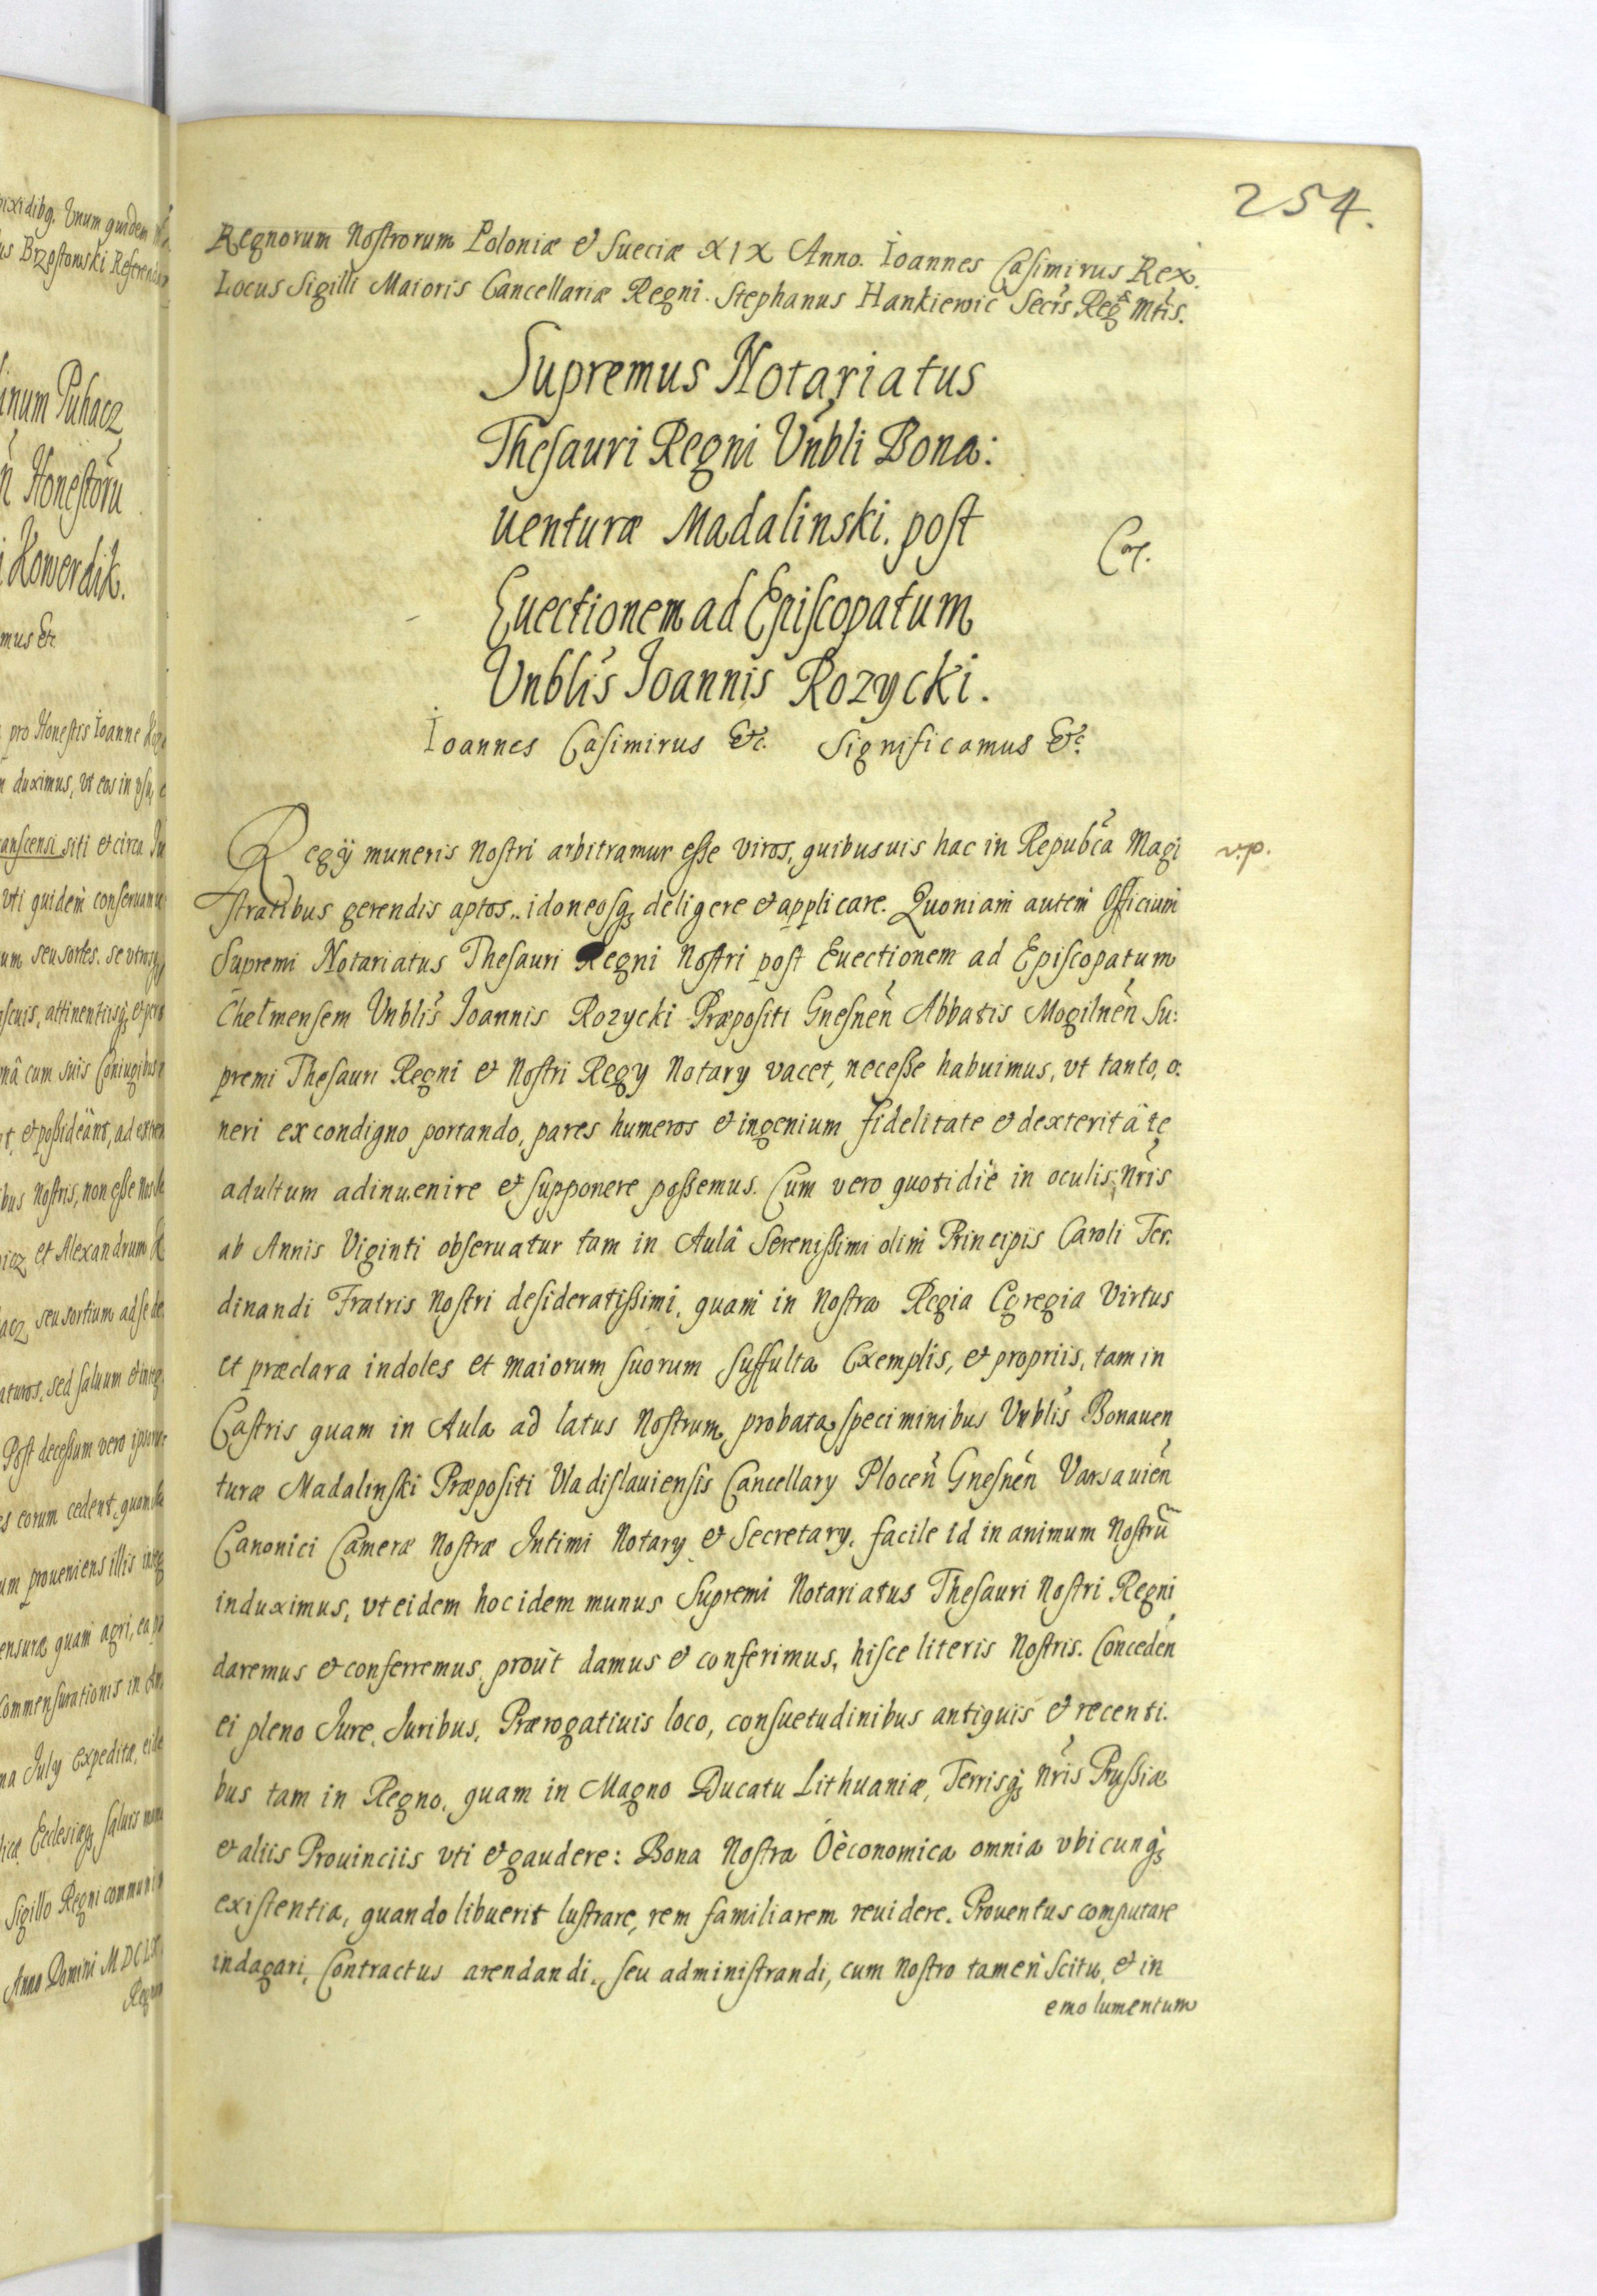 254.
Regnorum Nostrorum Poloniæ et Sueciæ XIX Anno. Ioannes Casimirus Rex.
Locus Sigilli Maioris Cancellariæ Regni. Stephanus Hankiewic Secr̃s Reg̃ Mt̃is.
Supremus Notariatus
Thesauri Regni Vñbli Bona:
uenturæ Madalinski. post
Euectionem ad Episcopatum
Vnblĩs Joannis Rozycki.
Cor.
Ioannes Casimirus Etc. Significamus Etc.
Regÿ muneris Nostri arbitramur esse viros, quibusuis hac in Repubc̃a Magi
stratibus gerendis aptos, idoneosq; deligere et applicare. Quoniam autem Officium
v.p.
Supremi Notariatus Thesauri Regni Nostri post Euectionem ad Episcopatum
Chełmensem Vnblĩs Joannis Rozycki Præpositi Gnesnen̄ Abbatis Mogilnen̄ Su:
premi Thesauri Regni et Nostri Regy Notary vacet, necesse habuimus, vt tanto, o.
neri ex condigno portando, pares humeros et ingenium fidelitate et dexteritâte
adultum adinuenire et supponere possemus. Cum vero quotidie in oculis nr̃is
ab Annis Viginti obseruatur tam in Aulâ Serenissimi olim Principis Caroli Fer.
dinandi Fratris Nostri desideratissimi, quam in Nostra Regia Egregia Virtus
et præclara indoles et maiorum suorum suffulta Exemplis, et propriis, tam in
Castris quam in Aula ad latus Nostrum, probata speciminibus Vnblĩs Bonauen
turæ Madalinski Præpositi Vladislauiensis Cancellary Plocen̄ Gnesnen̄ Varsauien̄
Canonici Cameræ Nostræ Intimi Notary et Secretary, facile id in animum Nostrũ
induximus, vt eidem hoc idem munus Supremi Notariatus Thesauri Nostri Regni
daremus et conferremus, prout damus et conferimus, hisce literis Nostris. Conceden̄
ei pleno Jure, Juribus, Prærogatiuis loco, consuetudinibus antiquis et recenti.
bus tam in Regno, quam in Magno Ducatu Lithuaniæ, Terrisq; nr̃is Prussiæ
et aliis Prouinciis vti et gaudere: Bona Nostra Oèconomica omnia vbicunq;
existentia, quando libuerit lustrare, rem familiarem reuidere. Prouentus computare
indagari, Contractus arendandi, seu administrandi, cum Nostro tamen scitu, et in
emolumentum